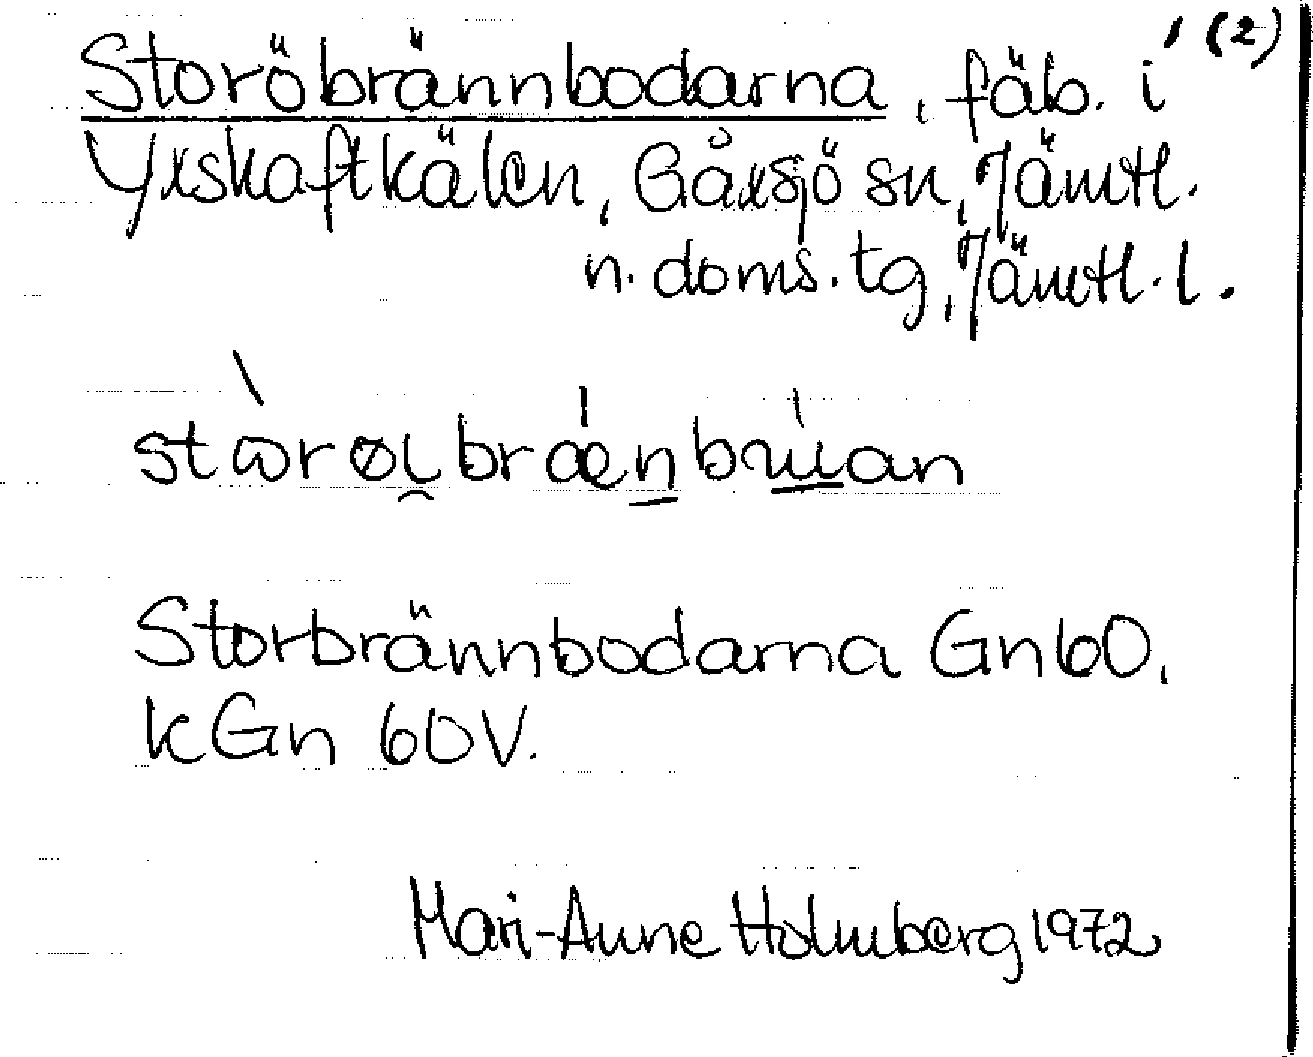 1 (2)
Storöbrännbodarna, fäb. i
Yxskaftkälen, Gåxsjö sn, Jämtl.
n. doms. tg, Jämtl. l.
Storbrännbodarna Gn60,
kGn 60V.
Mari-Anne Holmberg 1972